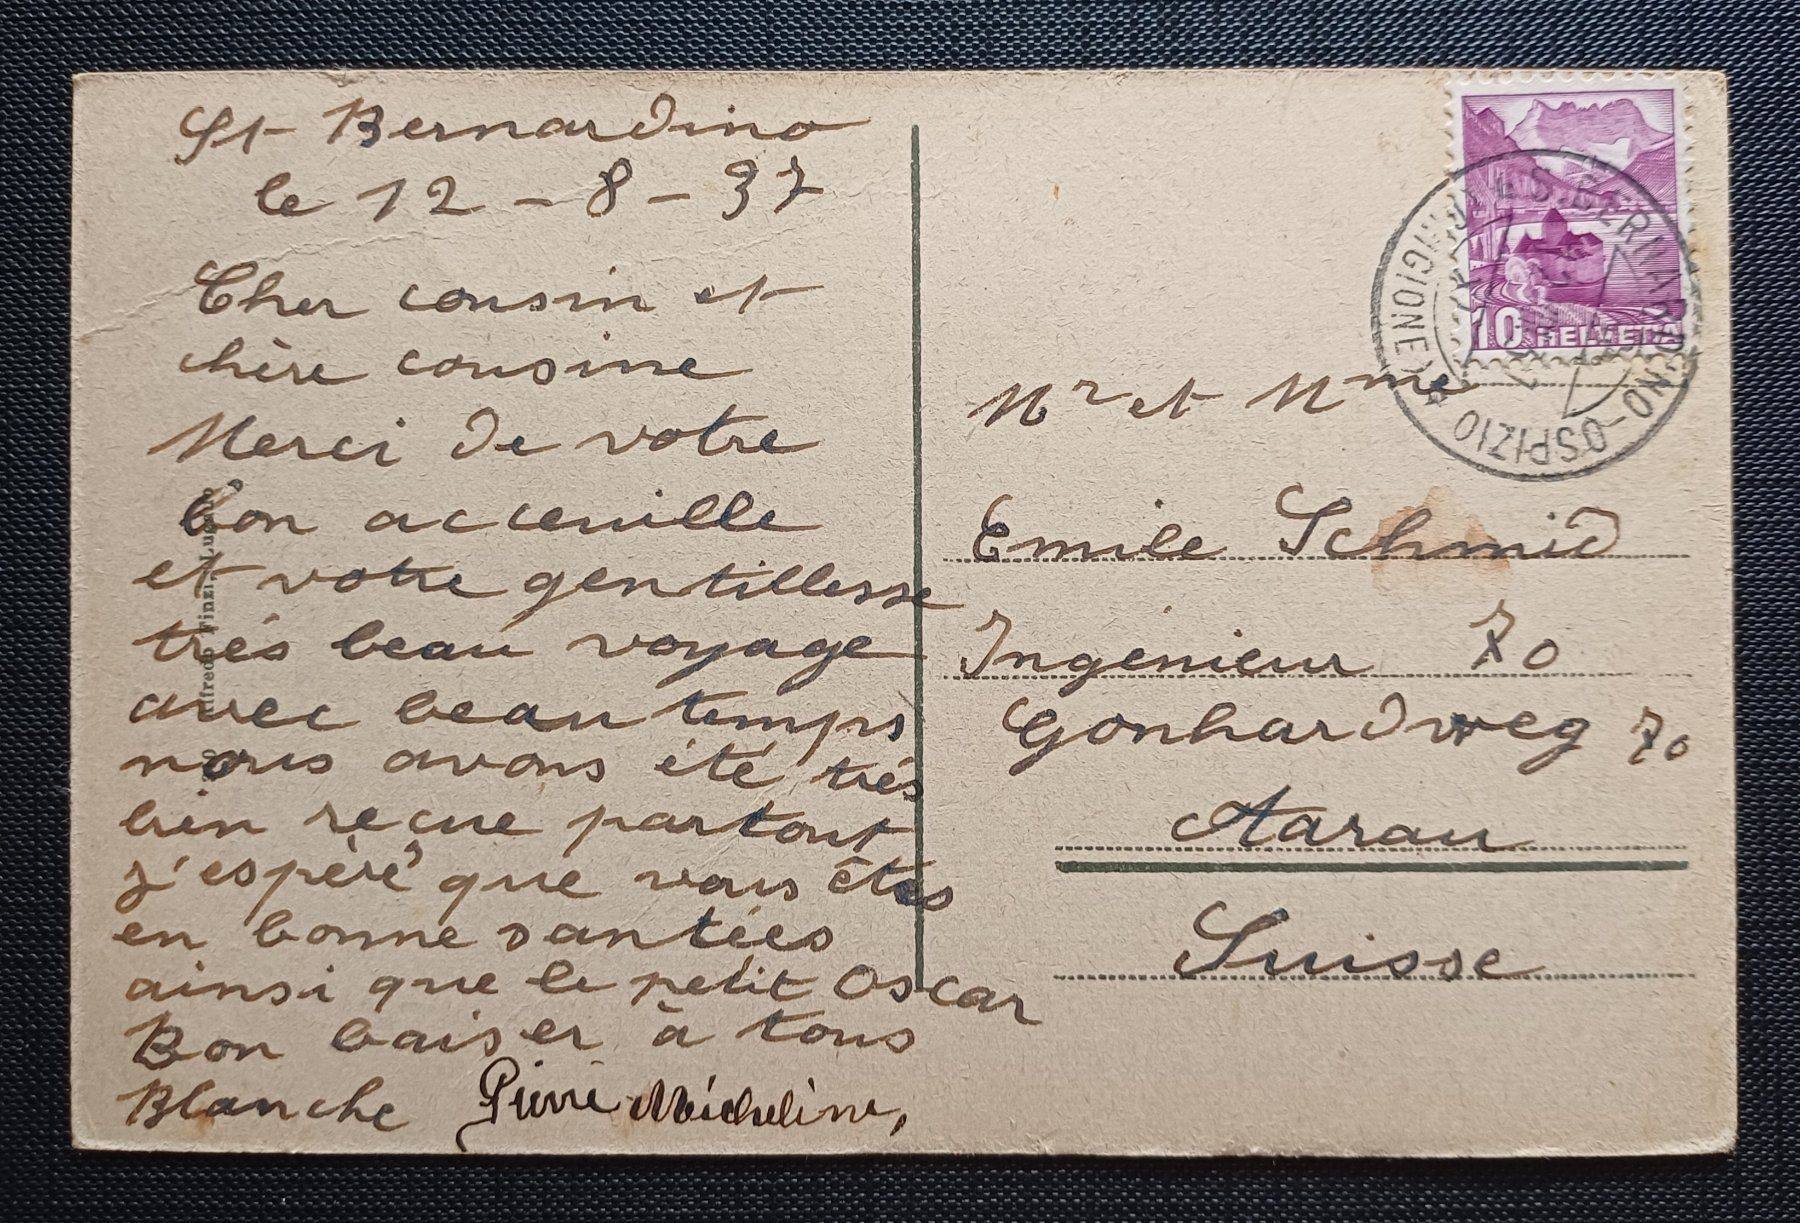 St Bernardino
le 12-8-37
Cher cousin et
chère cousine
Merci de votre
bon acceuille
et votre gentillesse
très beau voyage
avec beau temps
nous avons été très
bien reçue partout
j'espère que vous êtes
en bonne santées
ainsi que le petit Oscar
Bon baiser à tous
Blanche Pierre Micheline,
Alfredo Finzi, Lugano
10 HELVETIA
S. BERNARDINO-OSPIZIO
Mr et Mme
Emile Schmid
Ingénieur 70
Gonhardweg 70
Aarau
Suisse